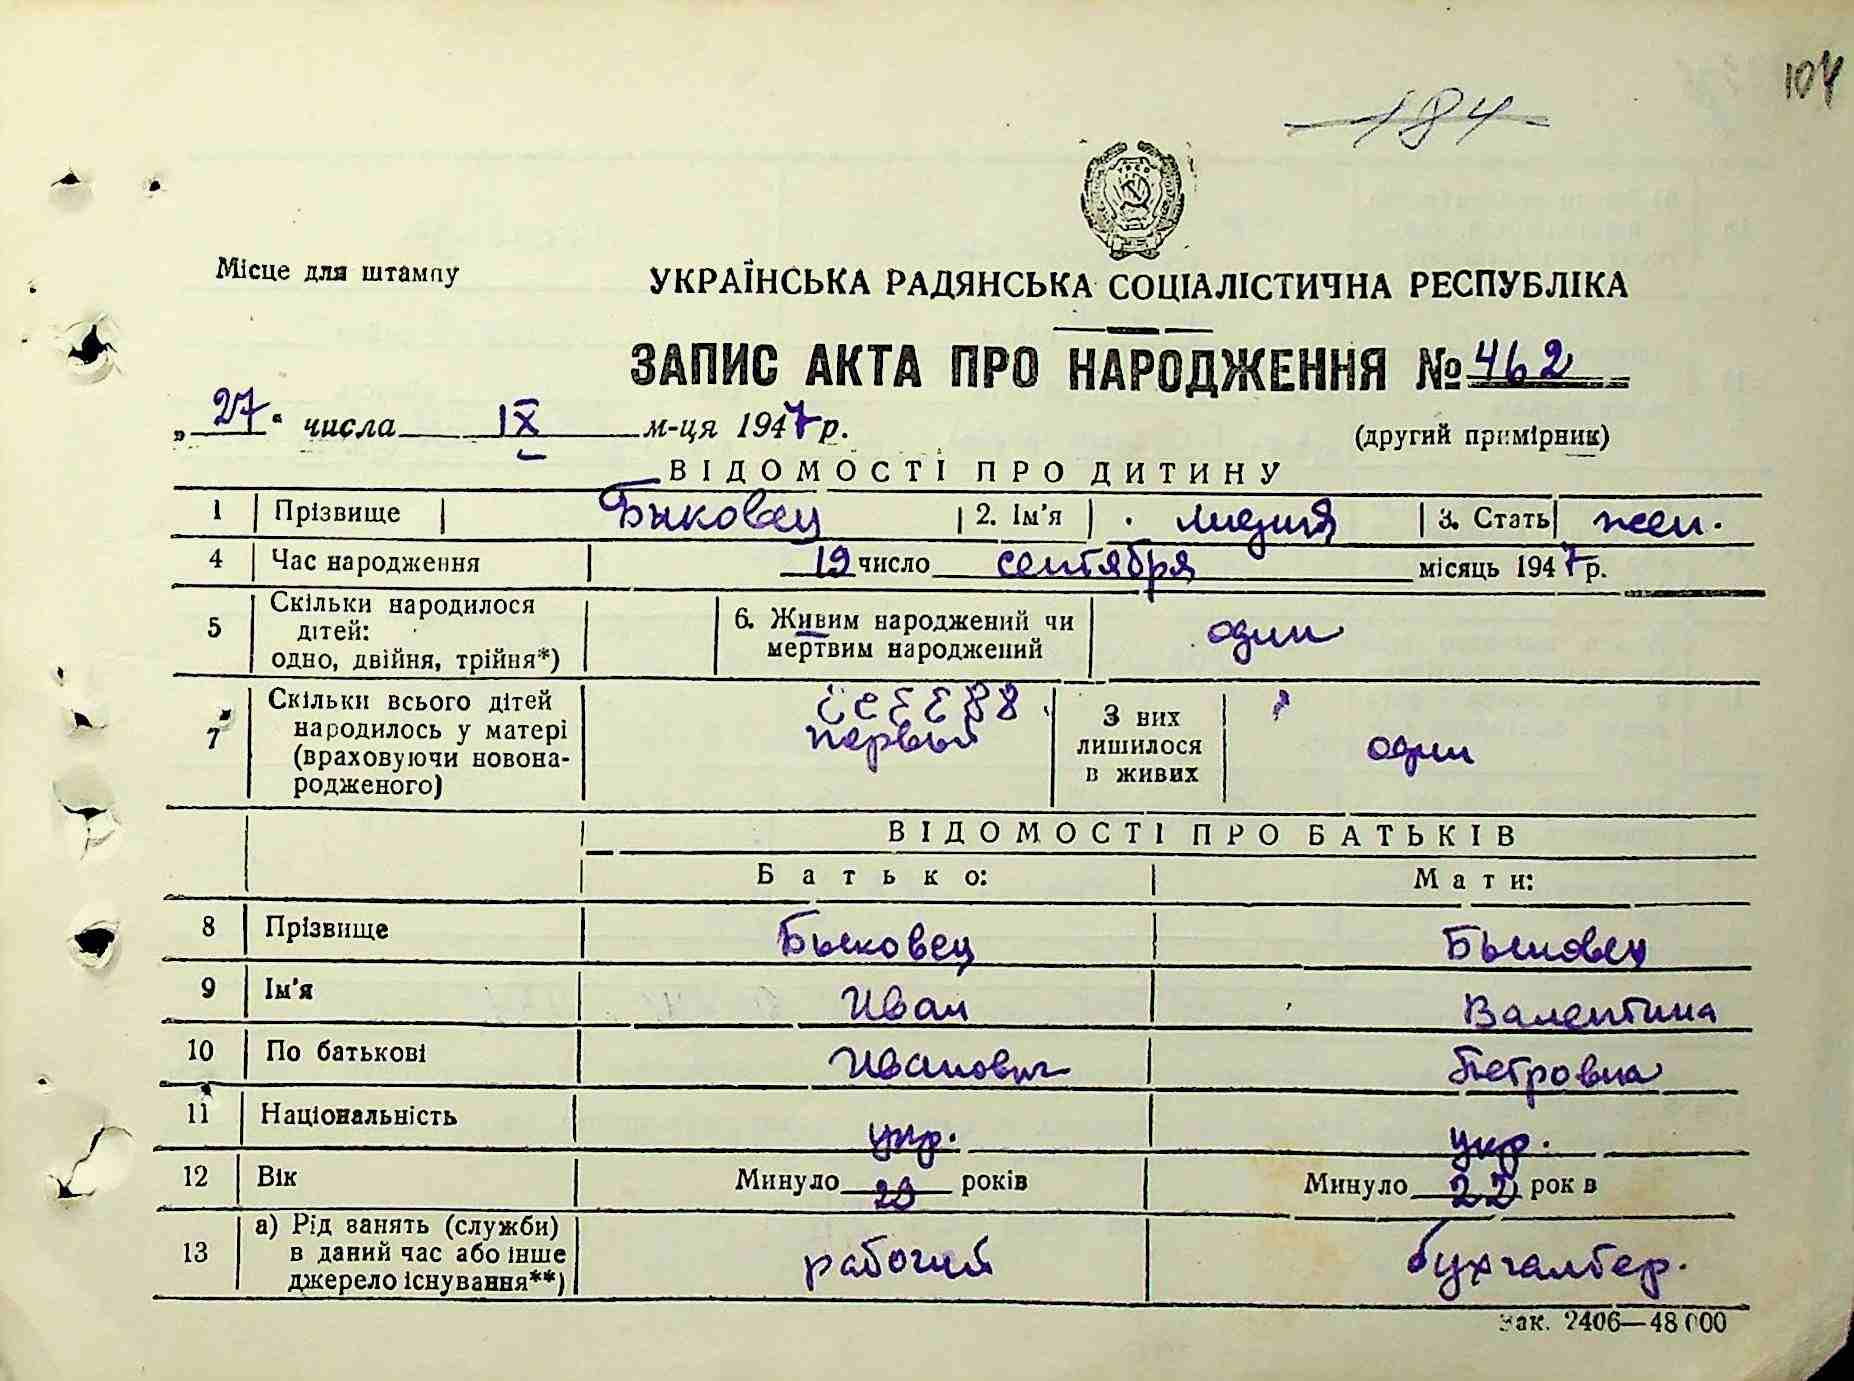 104
184
Місце для штампу
УКРАЇНСЬКА РАДЯНСЬКА СОЦІАЛІСТИЧНА РЕСПУБЛІКА
ЗАПИС АКТА ПРО НАРОДЖЕННЯ № 462
„27“ числа IX м-ця 1947 р.
(другий примірник)
ВІДОМОСТІ ПРО ДИТИНУ
1 Прізвище Быковец 2. Ім'я Лидия 3. Стать жен.
4 Час народження 19 число сентября місяць 1947 р.
5 Скільки народилося дітей: одно, двійня, трійня*) 6. Живим народжений чи мертвим народжений один
7 Скільки всього дітей народилось у матері (враховуючи новонародженого) первый З них лишилося в живих один
ВІДОМОСТІ ПРО БАТЬКІВ
Батько: Мати:
8 Прізвище Быковец Быковец
9 Ім'я Иван Валентина
10 По батькові Иванович Петровна
11 Національність укр. укр.
12 Вік Минуло років Минуло 22 рок в
13 а) Рід занять (служби) в даний час або інше джерело існування**) рабочий бухгалтер.
Зак. 2406—48 000